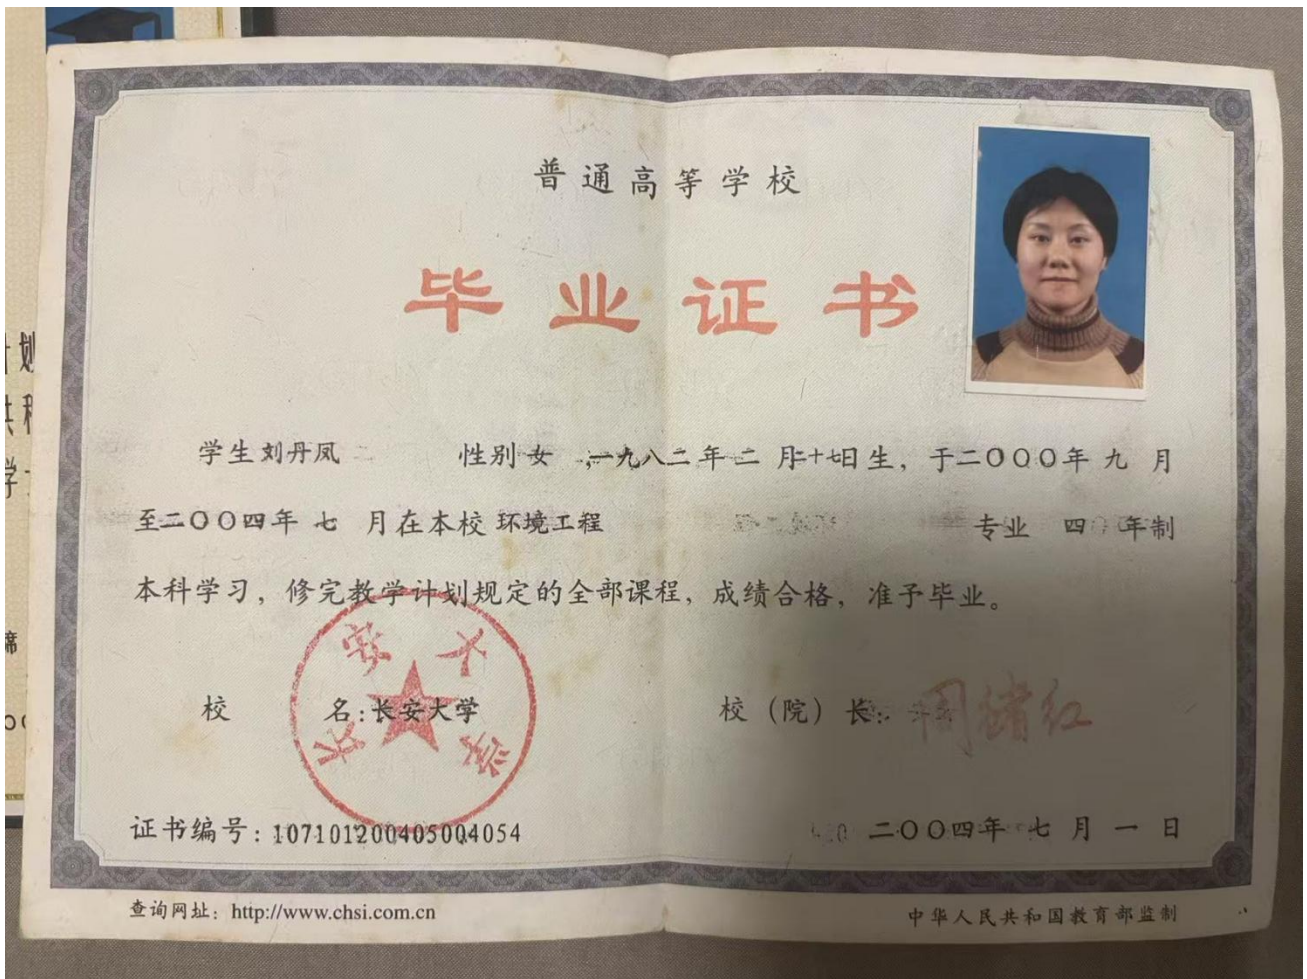 普通高等学校
毕业证书
学生刘丹凤 性别女,一九八二年二月十七日生,于二〇〇〇年九月
至二〇〇四年七月在本校环境工程 专业 四年制
本科学习,修完教学计划规定的全部课程,成绩合格,准予毕业。
校 名:长安大学 校(院)长:周绪红
长安大学
证书编号:107101200405004054 二〇〇四年七月一日
查询网址:http://www.chsi.com.cn 中华人民共和国教育部监制